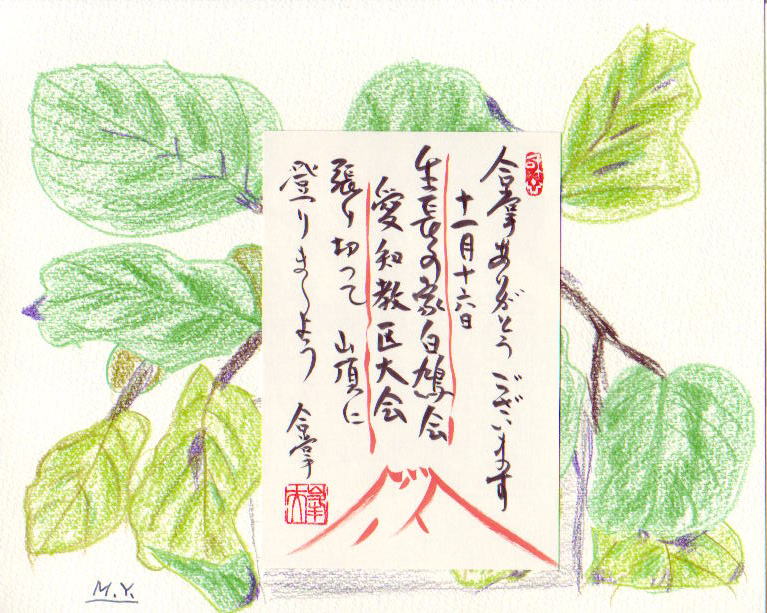 合掌ありがとうございます
十一月十六日
生長の家白鳩会
愛知教区大会
張り切って 山頂に
登りましょう
合掌
M.Y.